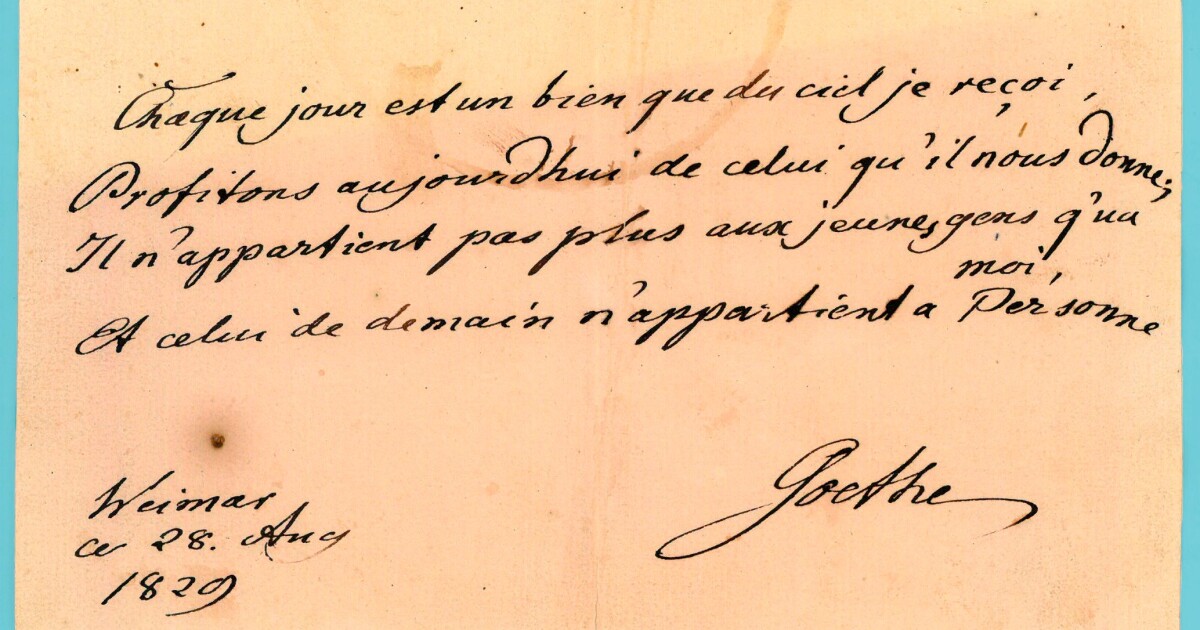 Chaque jour est un bien que du ciel je reçoi,
Profitons aujourdhui de celui qu'il nous donne;
Il n'appartient pas plus aux jeunes gens q'ua
moi,
Et celui de demain n'appartient a Personne
Weimar
ce 28. Aug
1829
Goethe